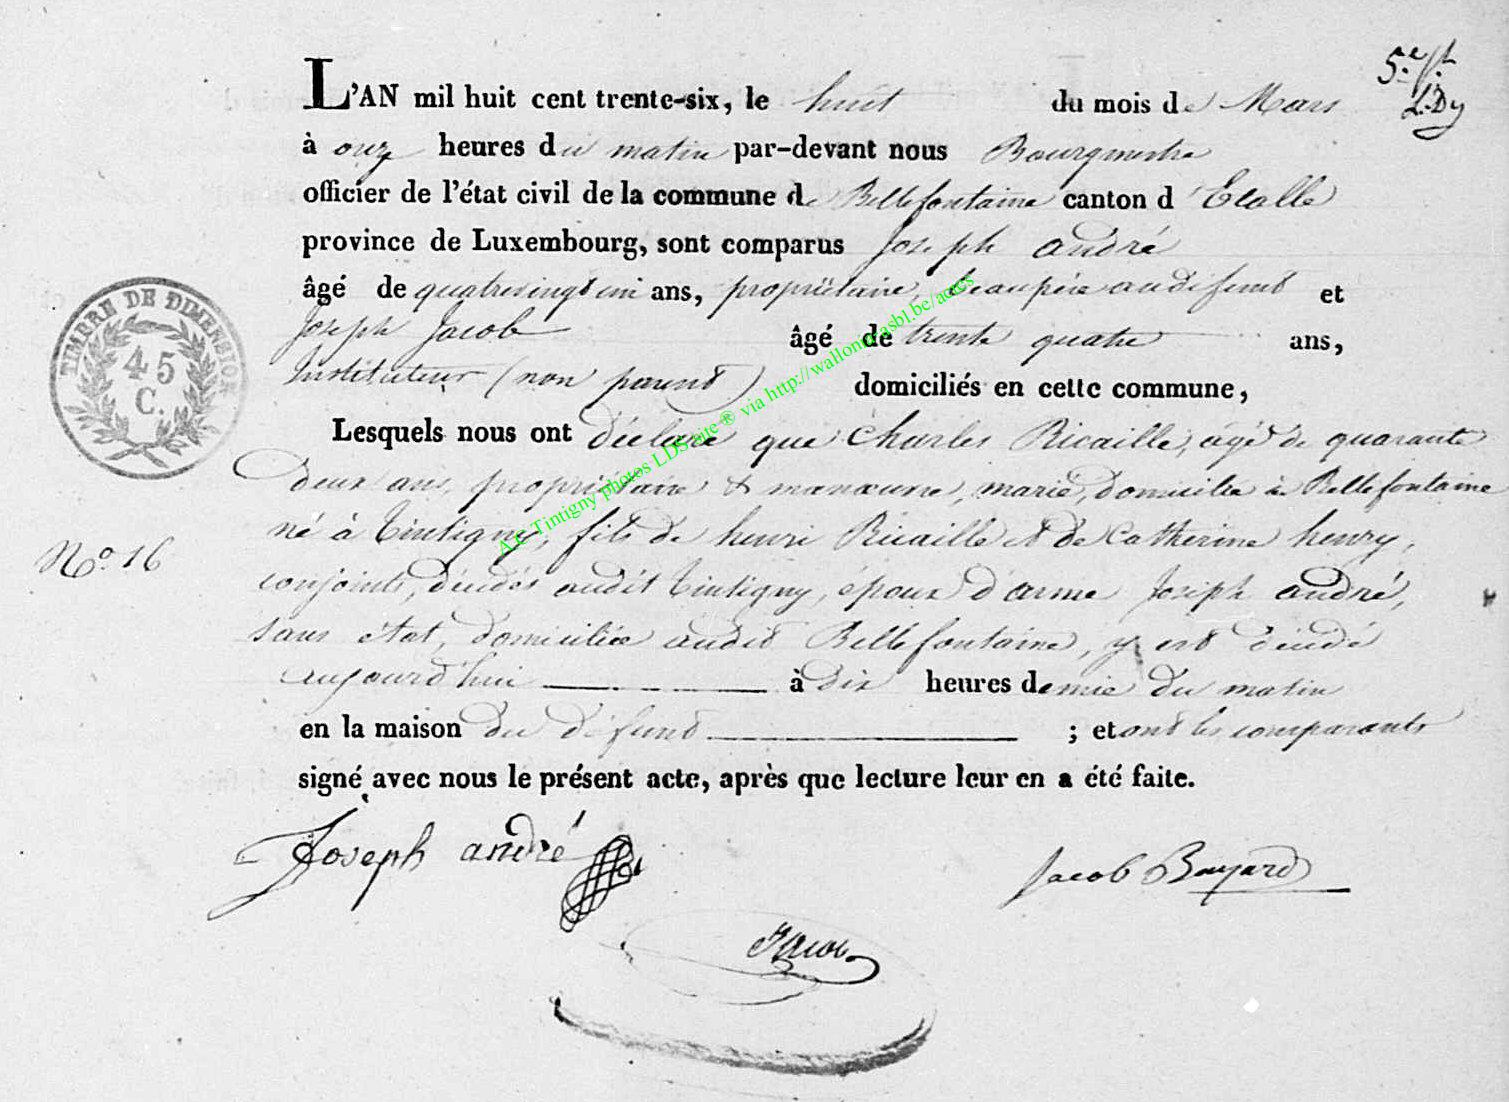 5.e f.t
L.Dy
L'AN mil huit cent trente-six, le huit du mois de Mars
à onze heures du matin par-devant nous Bourgmestre
officier de l'état civil de la commune de Bellefontaine canton d'Etalle
province de Luxembourg, sont comparus Joseph andré
âgé de quatrevingt un ans, propriétaire, beaupère audefunt et
Joseph Jacob âgé de trente quatre ans,
Instituteur (non parent) domiciliés en cette commune,
Lesquels nous ont déclaré que Charles Ricaille, agé de quarante
deux ans, propriétaire & manœuvre, marié, domicilié à Bellefontaine
né à Tintigny, fils de henri Ricaille et de Catherine henry,
conjoints, décédés audit Tintigny, époux d'anne Joseph andré,
sans état, domiciliée audit Bellefontaine, y est décédé
aujourd'hui à dix heures demie du matin
en la maison du défunt ; et ont les comparants
signé avec nous le présent acte, après que lecture leur en a été faite.
N.o 16
TIMBRE DE DIMENSION
45
C.
A.C Tintigny photos LDS site ® via http://wallonica.asbl.be/actes
Joseph andré
Jacob Bayard
Jacob